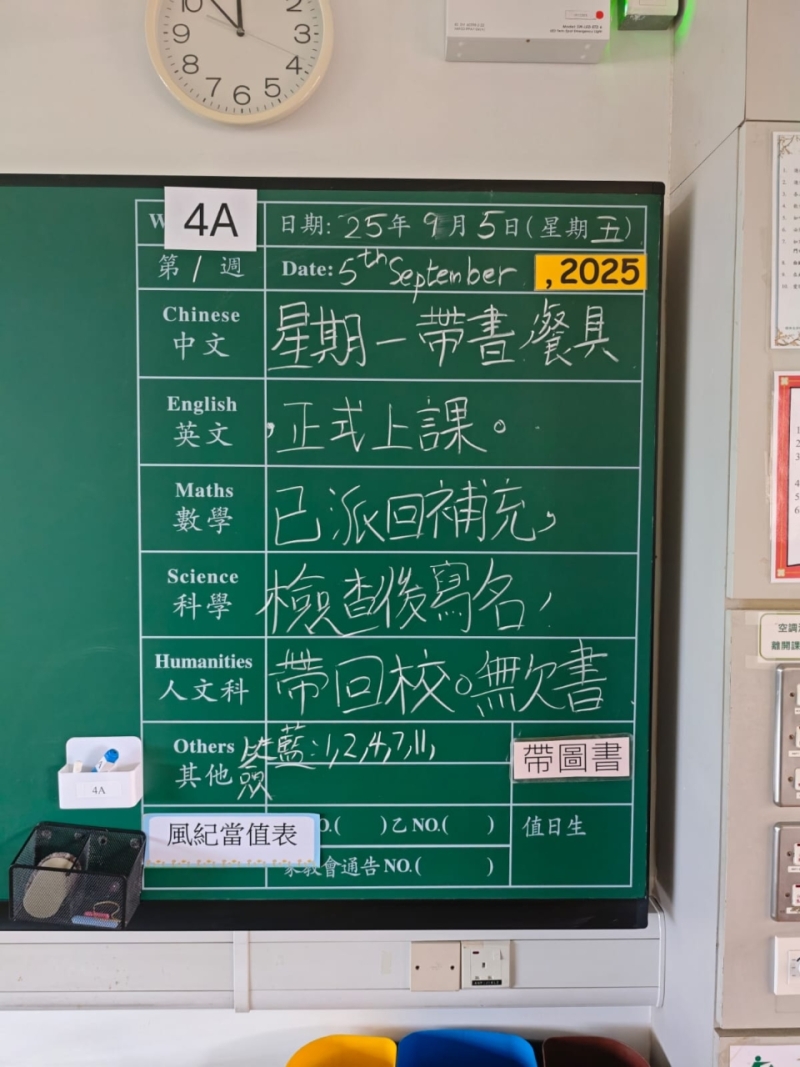 10 2
9 3
8 4
7 6 5
W
4A
日期: 25年9月5日(星期五)
第1週
Date: 5th September , 2025
Chinese
中文
星期一帶書、餐具
English
英文
,正式上課。
Maths
數學
已派回補充,
Science
科學
檢查後寫名,
Humanities
人文科
帶回校。無欠書
Others
其他
藍:1,2,4,7,11,
帶圖書
4A
風紀當值表
O.( )乙NO.( )
值日生
家教會通告NO.( )
空調
離開課